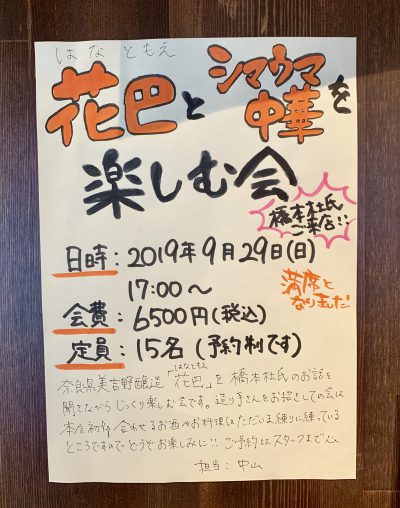 はなともえ
花巴とシマウマ中華を
楽しむ会
橋本杜氏
ご来店!!
日時:2019年9月29日(日)
17:00〜
満席と
なりました!
会費:6500円(税込)
定員:15名(予約制です)
はなともえ
奈良県美吉野醸造「花巴」を橋本杜氏のお話を
聞きながらじっくり楽しむ会です。造り手さんをお招きしての会は
本店初!! 合わせるお酒やお料理はただいま練りに練っている
ところですのでどうぞお楽しみに!! ご予約はスタッフまで
担当:中山